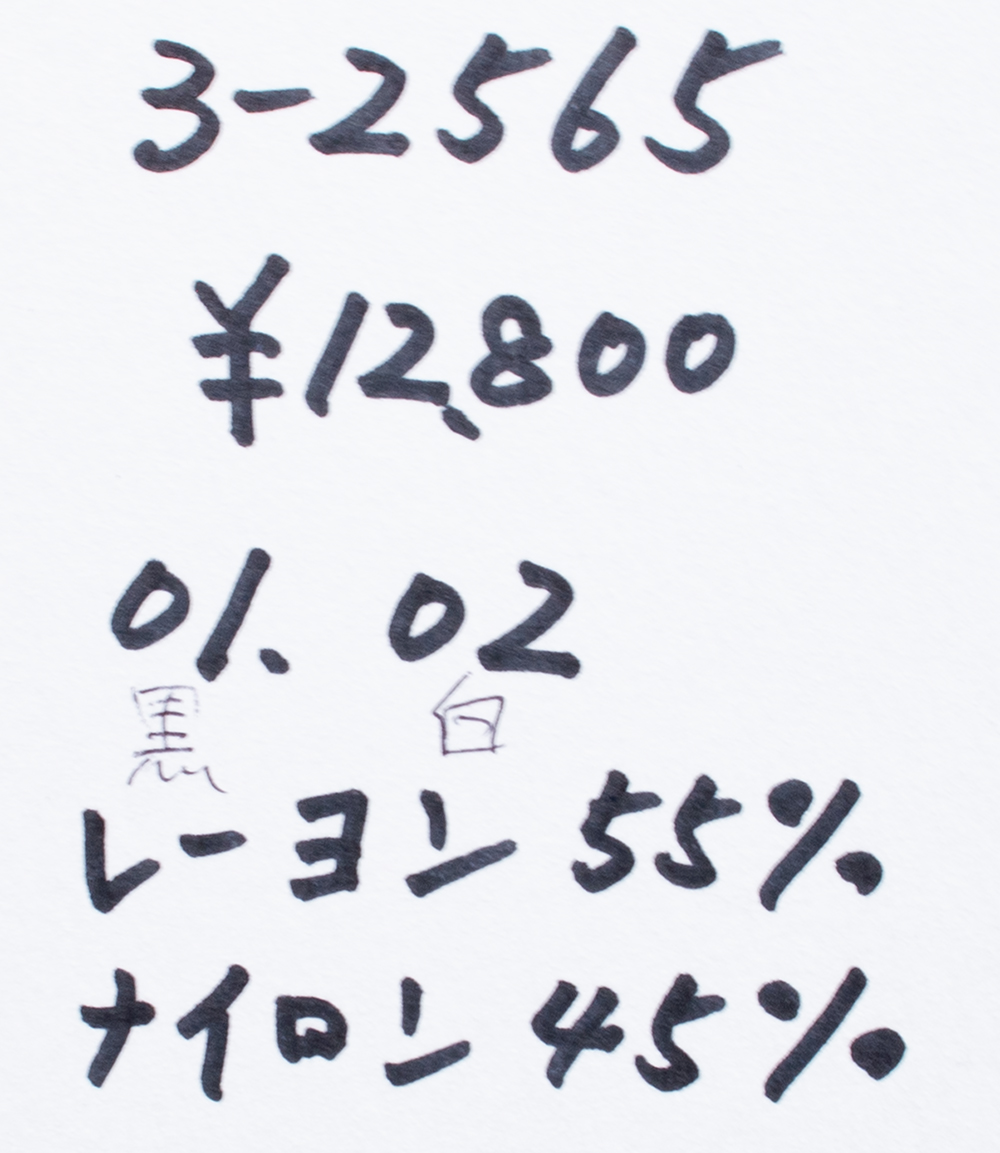 3-2565
¥12,800
01. 02
黒 白
レーヨン 55%
ナイロン 45%